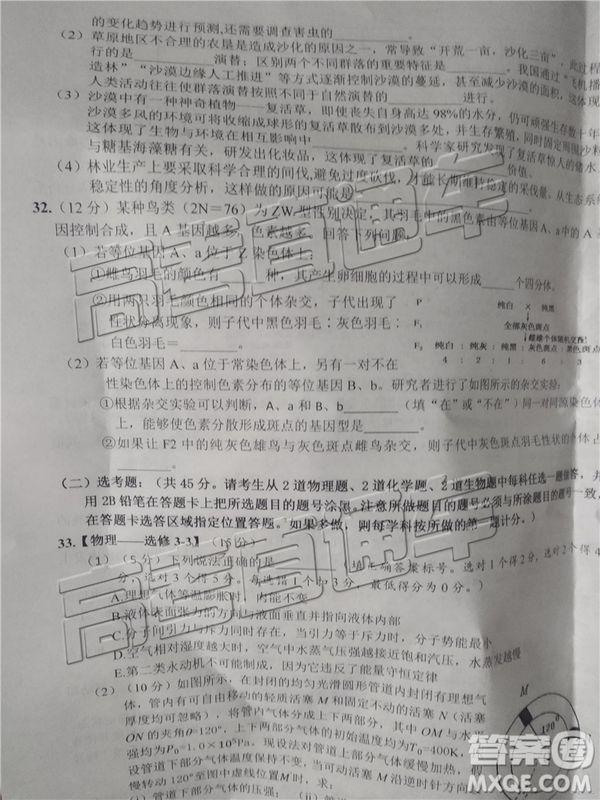 的变化趋势进行预测,还需要调查害虫的__________。
(2)草原地区不合理的农垦是造成沙化的原因之一,常导致“开荒一亩,沙化三亩”,此过程
__________演替;区别两个不同群落的重要特征是__________。我国通过“飞机播
造林”“沙漠边缘人工推进”等方式逐渐控制沙漠的蔓延,甚至减少沙漠的面积,这体现
人类活动往往使群落演替按照不同于自然演替的__________进行。
(3)沙漠中有一种神奇植物——复活草,即使丧失自身高达98%的水分,仍可顽强生存数十年
沙漠多风的环境可将收缩成球形的复活草散布到沙漠多处,
这体现了生物与环境在相互影响中__________。科学家研究
与糖基海藻糖有关,研发出化妆品,这体现了复活草的__________价值。
(4)林业生产上要采取科学合理的间伐,避免过度砍伐,才能长期维持稳定的采伐量,从生态系
稳定性的角度分析,这样做的原因可能是__________
32.(12分)某种鸟类(2N=76)为ZW型性别决定,其羽毛中的黑色素由等位基因A、a中的A基
因控制合成,且A基因越多,色素越多。回答下列问题。
(1)若等位基因A、a位于Z染色体上:
①雌鸟羽毛的颜色有______种,其产生卵细胞的过程中可以形成______个四分体。
②用两只羽毛颜色相同的个体杂交,子代出现了
性状分离现象,则子代中黑色羽毛:灰色羽毛:
白色羽毛=__________。
P 纯白 × 纯黑
F₁ 全部灰色斑点
雌雄个体随机交配
F₂ 纯白:纯灰:纯黑:灰色斑点:黑色斑点
4 : 2 : 1 : 6 : 3
(2)若等位基因A、a位于常染色体上,另有一对不在
性染色体上的控制色素分布的基因B、b。研究者进行了如图所示的杂交实验:
①根据杂交实验可以判断,A、a和B、b______(填“在”或“不在”)同一对同源染色体
上,能够使色素分散形成斑点的基因型是__________。
②如果让F2中的纯灰色雄鸟与灰色斑点雌鸟杂交,子代中灰色斑点羽毛性状的个体占
__________。
(二)选考题:(共45分。请考生从2道物理题、2道化学题、2道生物题中每科任选一题作答,并
用2B铅笔在答题卡上把所选题目的题号涂黑。注意所做题目的题号必须与所涂题目的题号一致,
在答题卡选答区域指定位置答题。如果多做,则每学科按所做的第一题计分。)
33.【物理——选修3-3】(15分)
(1)(5分)下列说法正确的是______。(填正确答案标号。选对1个得2分,选对2个得4
分,选对3个得5分。每选错1个扣3分,最低得分为0分。)
A.理想气体等温膨胀时,内能不变
B.液体表面张力的方向与液面垂直并指向液体内部
C.分子间引力与斥力同时存在,当引力等于斥力时,分子势能最小
D.空气相对湿度越大时,空气中水蒸气压强越接近饱和汽压,水蒸发越慢
E.第二类永动机不可能制成,因为它违反了能量守恒定律
(2)(10分)如图所示,在封闭的均匀光滑圆形管道内封闭有理想气
体,管内有可自由移动的轻质活塞M和固定不动的活塞N(活塞
厚度均可忽略),将管内气体分成上下两部分,其中OM与水平
ON的夹角θ=120°,上下两部分气体的始温度均为T₀=400K,压
强均为P₀=1.0×10⁵Pa。现设法对管道上部分气体缓慢加热,
设管道下部分气体温度保持不变,当活塞M沿逆时针方向
慢转动120°至图中虚线位置M时,求:
M
120°
答案圈
MXQE.COM
高考直通车
高考直通车